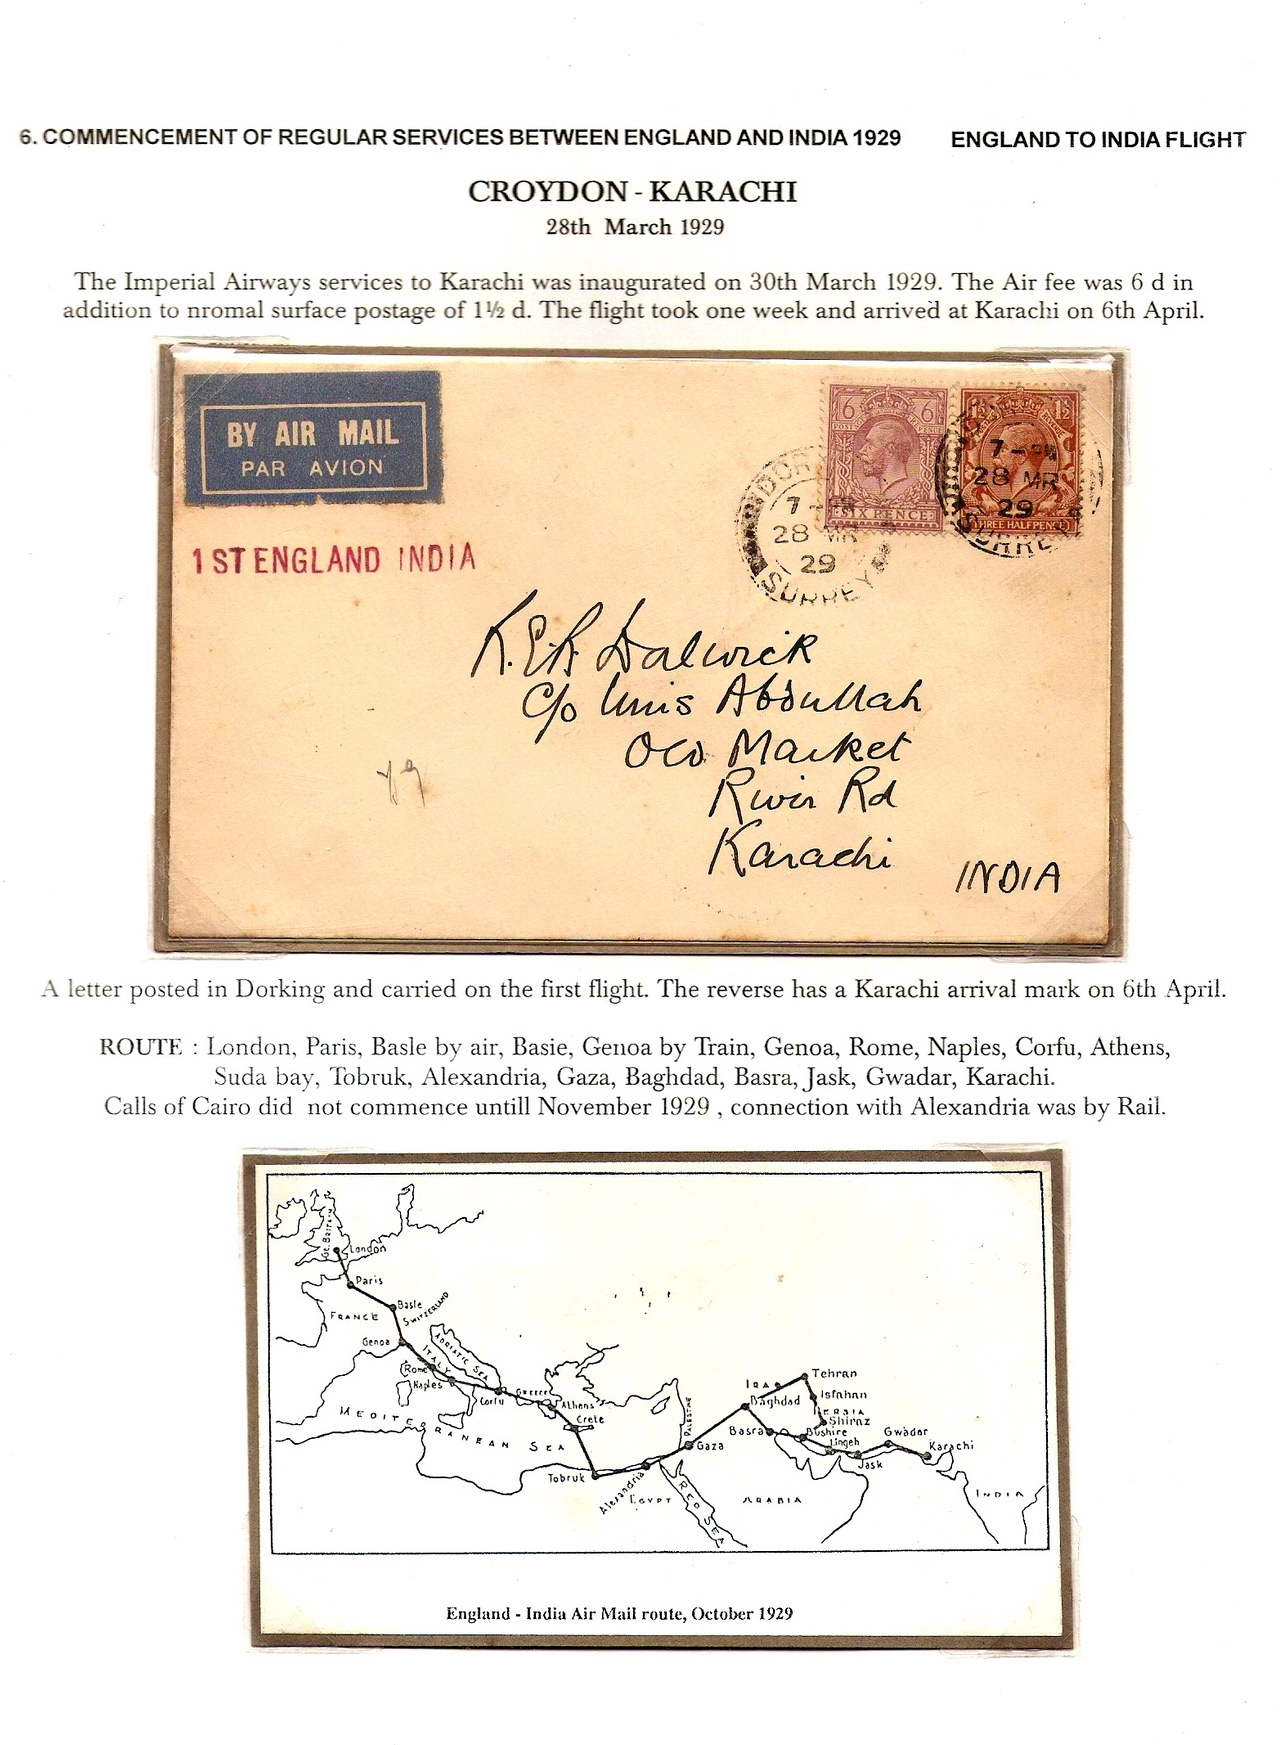 6. COMMENCEMENT OF REGULAR SERVICES BETWEEN ENGLAND AND INDIA 1929 ENGLAND TO INDIA FLIGHT
CROYDON - KARACHI
28th March 1929
The Imperial Airways services to Karachi was inaugurated on 30th March 1929. The Air fee was 6 d in
addition to nromal surface postage of 1½ d. The flight took one week and arrived at Karachi on 6th April.
BY AIR MAIL
PAR AVION
1ST ENGLAND INDIA
6 6
POSTAGE
SIX PENCE
1½
THREE HALFPENCE
DOR
7 -
28 MR
29
SURREY
7 - PM
28 MR
29
SURRE
K.E.R. Dalwick
c/o Unis Abdullah
Old Market
River Rd
Karachi
INDIA
A letter posted in Dorking and carried on the first flight. The reverse has a Karachi arrival mark on 6th April.
ROUTE : London, Paris, Basle by air, Basie, Genoa by Train, Genoa, Rome, Naples, Corfu, Athens,
Suda bay, Tobruk, Alexandria, Gaza, Baghdad, Basra, Jask, Gwadar, Karachi.
Calls of Cairo did not commence untill November 1929 , connection with Alexandria was by Rail.
Gt. Britain
London
Paris
Basle
SWITZERLAND
FRANCE
Genoa
ITALY
ADRIATIC SEA
Rome
Naples
Corfu
Greece
Athens
Crete
MEDITERRANEAN SEA
Tobruk
Alexandria
EGYPT
PALESTINE
Gaza
RED SEA
ARABIA
IRAQ
Baghdad
Tehran
Isfahan
PERSIA
Shiraz
Basra
Bushire
Lingeh
Jask
Gwadar
Karachi
INDIA
England - India Air Mail route, October 1929